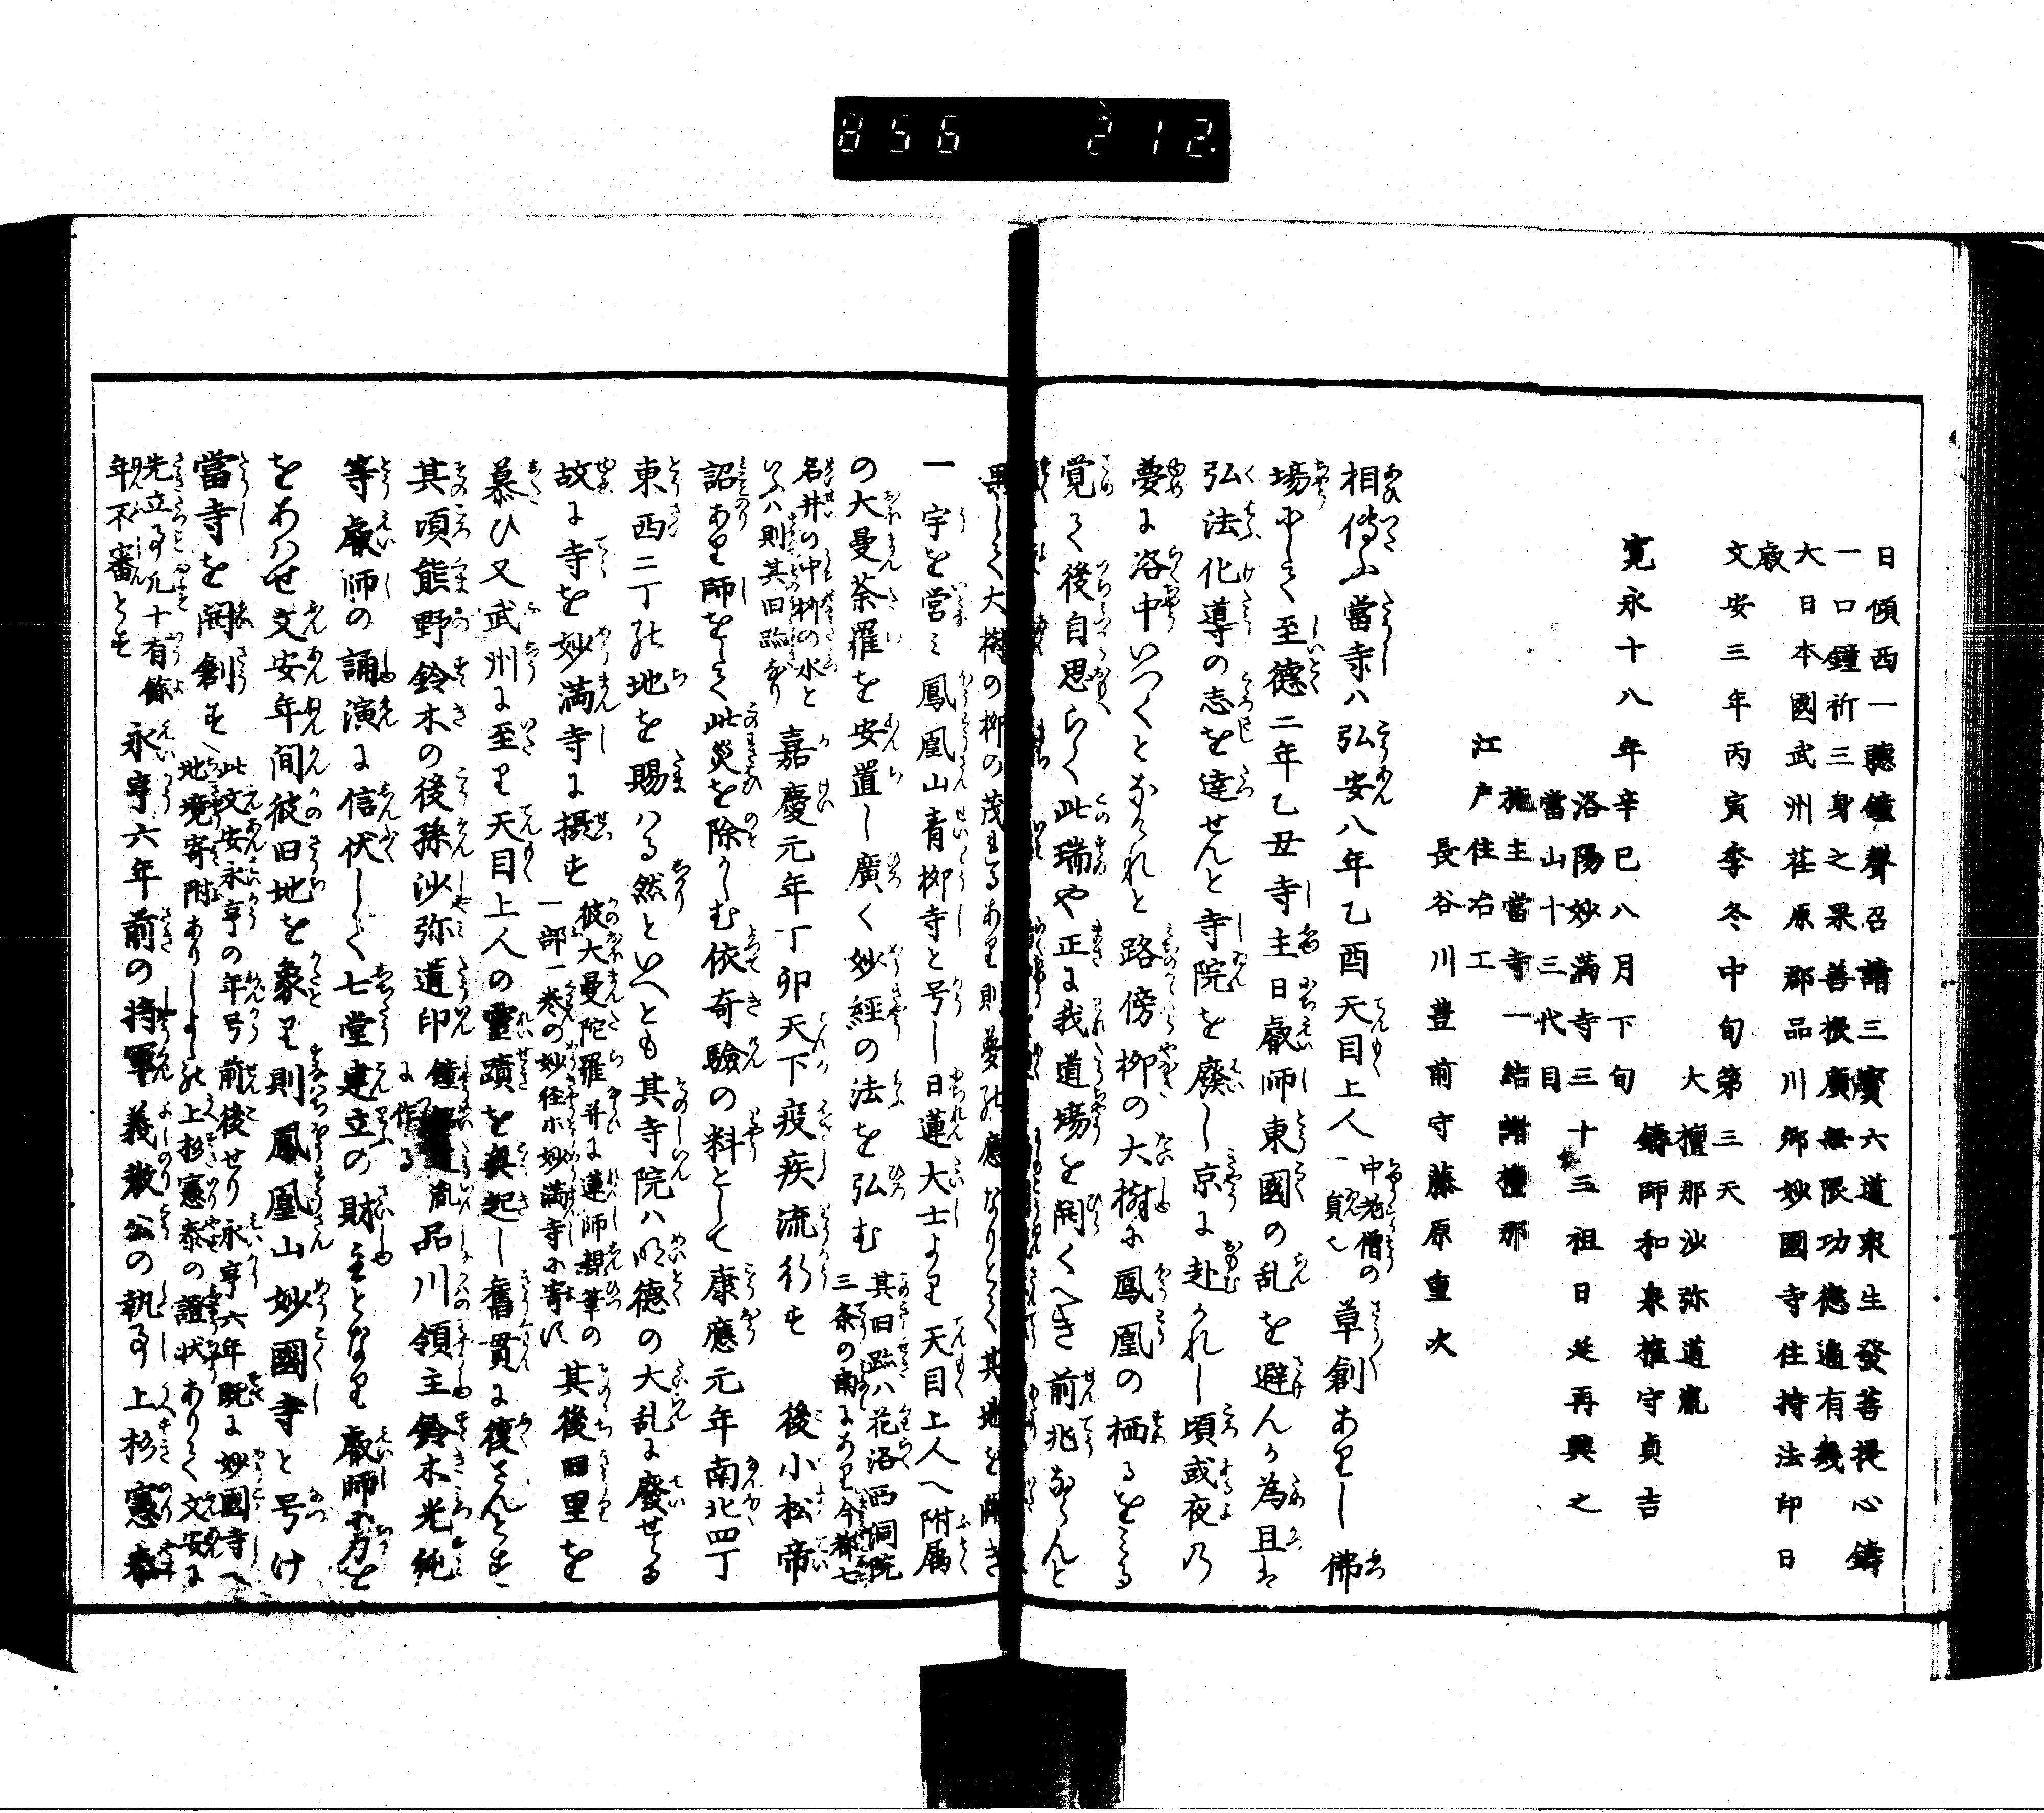 856 212
日傾西一聽鐘聲召請三寶六道衆生發菩提心鑄
一口鐘祈三身之果善根廣無限功德遍有幾
大日本國武州荏原郡品川郷妙國寺住持法印日
叡
文安三年丙寅季冬中旬第三天
大檀那沙弥道胤
鑄師和泉權守貞吉
寛永十八年辛巳八月下旬
洛陽妙満寺三十三祖日延再興之
當山十三代目
施主當寺一結諸檀那
江戸住右工
長谷川豊前守藤原重次
相傳ふ當寺ハ弘安八年乙酉天目上人中老僧の一員也草創ありし佛
場にして至德二年乙丑寺主日叡師東國の乱を避んか為且は
弘法化導の志を達せんと寺院を廢し京に赴かれし頃或夜乃
夢に洛中いつくとなれと路傍柳の大樹に鳳凰の栖るをミる
覚て後自思らく此瑞や正に我道場を開くへき前兆ならんと
果して大樹の柳の茂れるあり則夢の應なりとて其地を開き
一宇を営ミ鳳凰山青柳寺と号し日蓮大士より天目上人へ附属
の大曼荼羅を安置し廣く妙經の法を弘む其旧跡ハ花洛西洞院
三条の南にあり今都七
名井の中柳の水と
いふハ則其旧跡なり嘉慶元年丁卯天下疫疾流行す後小松帝
詔あり師をして此災を除かしむ依奇驗の料として康應元年南北四丁
東西三丁の地を賜ハる然といへとも其寺院ハ明德の大乱に廢せる
故に寺を妙満寺に摂す彼大曼陀羅并に蓮師親筆の
一部一巻の妙経ホ妙満寺に寄す其後旧里を
慕ひ又武州に至り天目上人の靈蹟を興起し舊貫に復さんとす
其頃熊野鈴木の後孫沙弥道印鐘銘道胤に作る品川領主鈴木光純
等叡師の誦演に信伏して七堂建立の財主となり叡師に力を
をあハせ文安年间彼旧地を象り則鳳凰山妙國寺と号け
當寺を開創す此文安永享の年号前後せり永享六年既に妙國寺へ
地境寄附ありしよし上杉憲泰の證状ありて文安に
先立る事凡十有餘
年不審とす永享六年前の将軍義教公の執事上杉憲泰